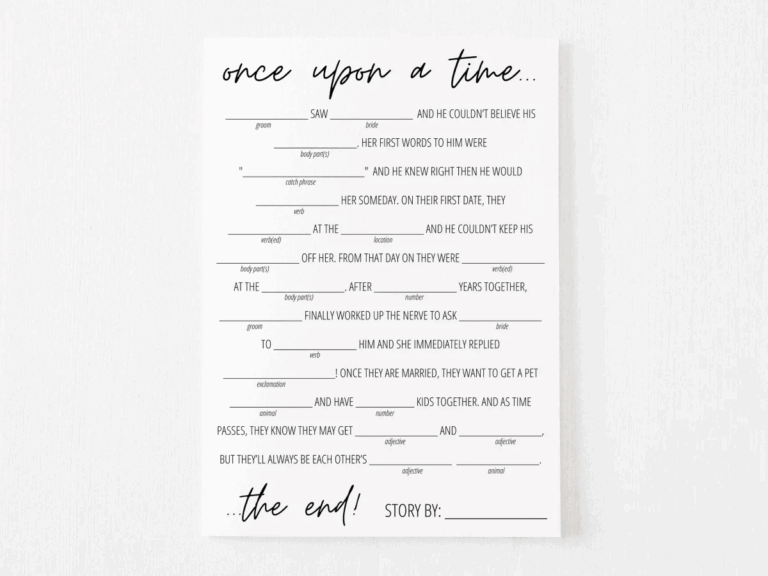 once upon a time...
____________ SAW ____________ AND HE COULDN'T BELIEVE HIS
groom bride
____________. HER FIRST WORDS TO HIM WERE
body part(s)
"__________________" AND HE KNEW RIGHT THEN HE WOULD
catch phrase
____________ HER SOMEDAY. ON THEIR FIRST DATE, THEY
verb
____________ AT THE ____________ AND HE COULDN'T KEEP HIS
verb(ed) location
____________ OFF HER. FROM THAT DAY ON THEY WERE ____________
body part(s) verb(ed)
AT THE ____________. AFTER ____________ YEARS TOGETHER,
body part(s) number
____________ FINALLY WORKED UP THE NERVE TO ASK ____________
groom bride
TO ____________ HIM AND SHE IMMEDIATELY REPLIED
verb
________________! ONCE THEY ARE MARRIED, THEY WANT TO GET A PET
exclamation
____________ AND HAVE ________ KIDS TOGETHER. AND AS TIME
animal number
PASSES, THEY KNOW THEY MAY GET ____________ AND ____________,
adjective adjective
BUT THEY'LL ALWAYS BE EACH OTHER'S ____________ ____________.
adjective animal
...the end! STORY BY: ______________